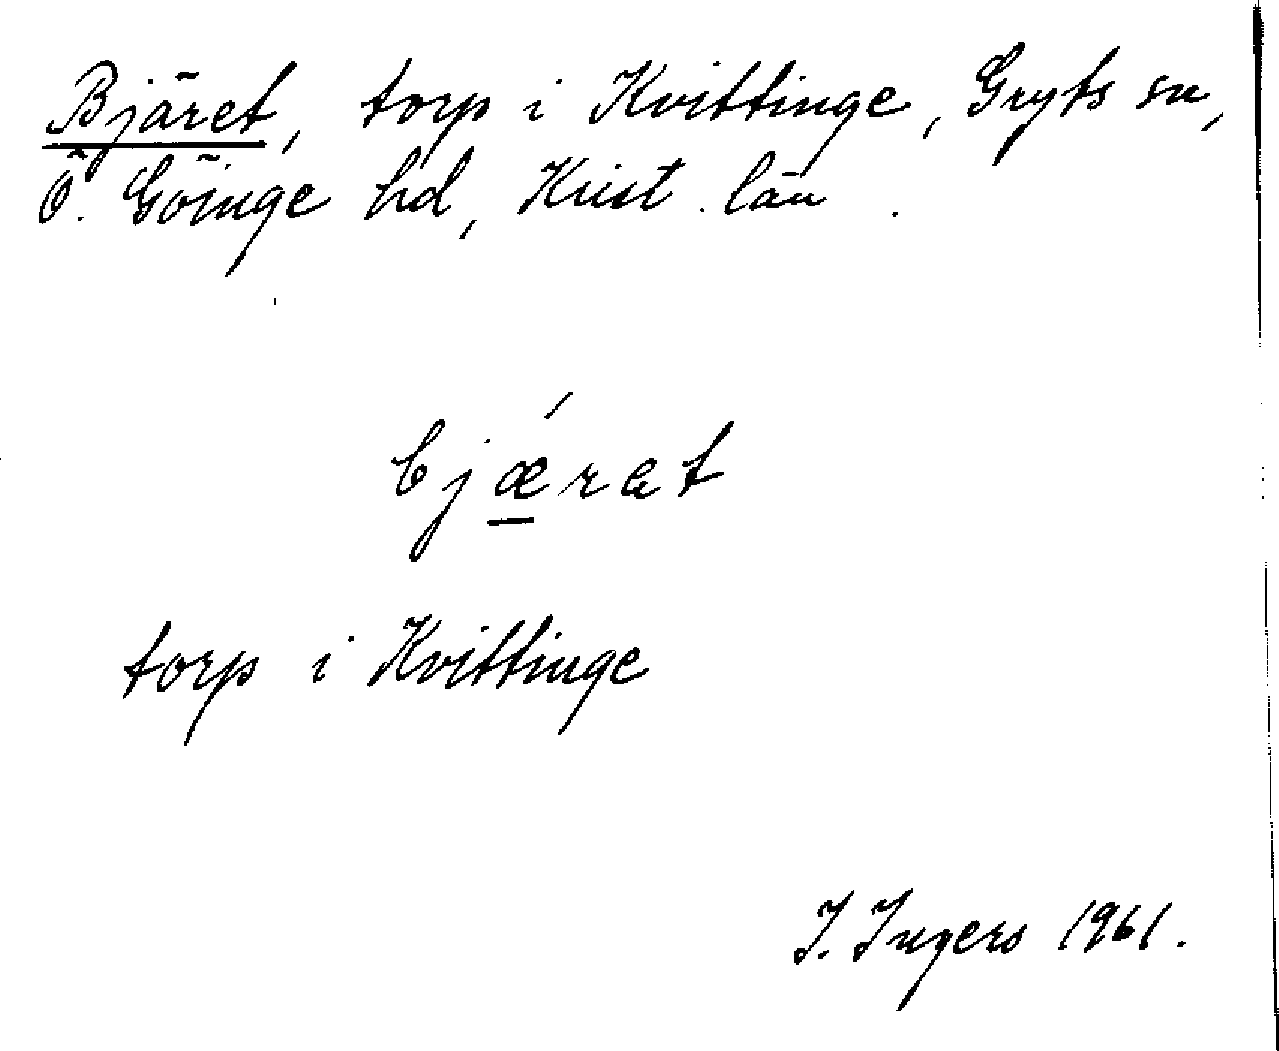 Bjäret, torp i Kvittinge, Gryts sn,
Ö. Göinge hd, Krist. län.
bjǽ̲rat
torp i Kvittinge
I. Ingers 1961.